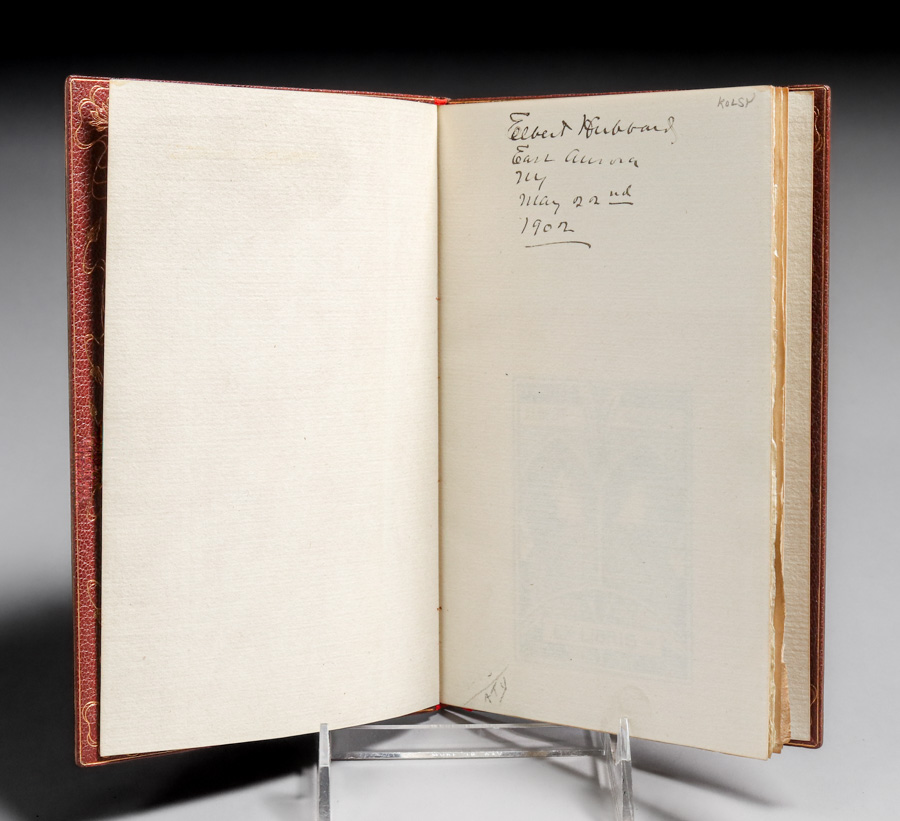 KOLSY
Elbert Hubbard
East Aurora
NY
May 22nd
1902